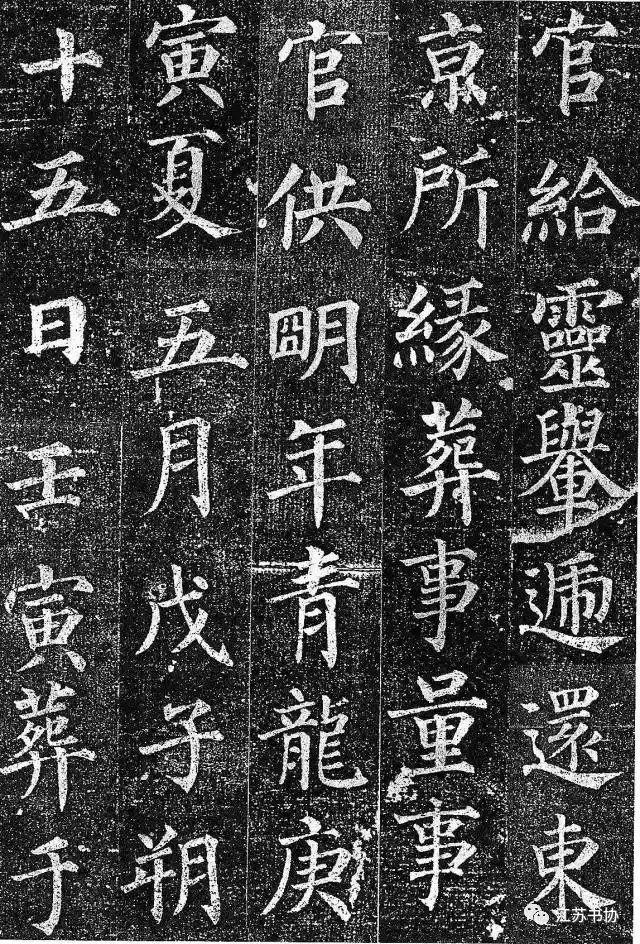 官給靈轝遞還東
京所緣葬事量事
官供明年青龍庚
寅夏五月戊子朔
十五日壬寅葬于
江苏书协